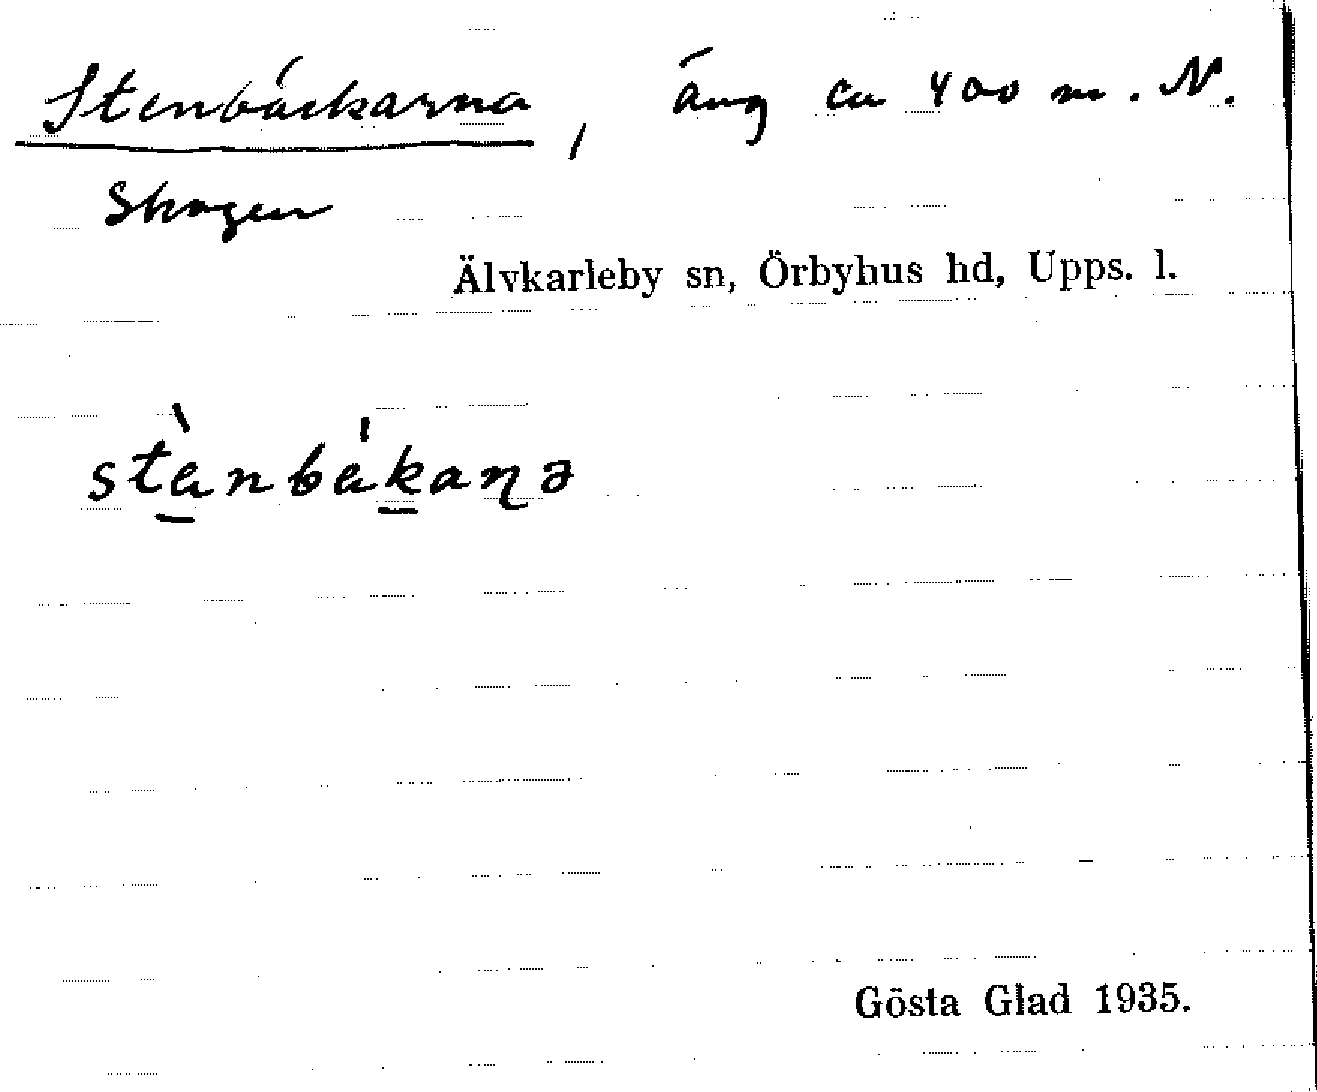 Stenbäckarna, äng ca 400 m. N.
Skogen
Älvkarleby sn, Örbyhus hd, Upps. l.
stὲnbákaɳə
Gösta Glad 1935.